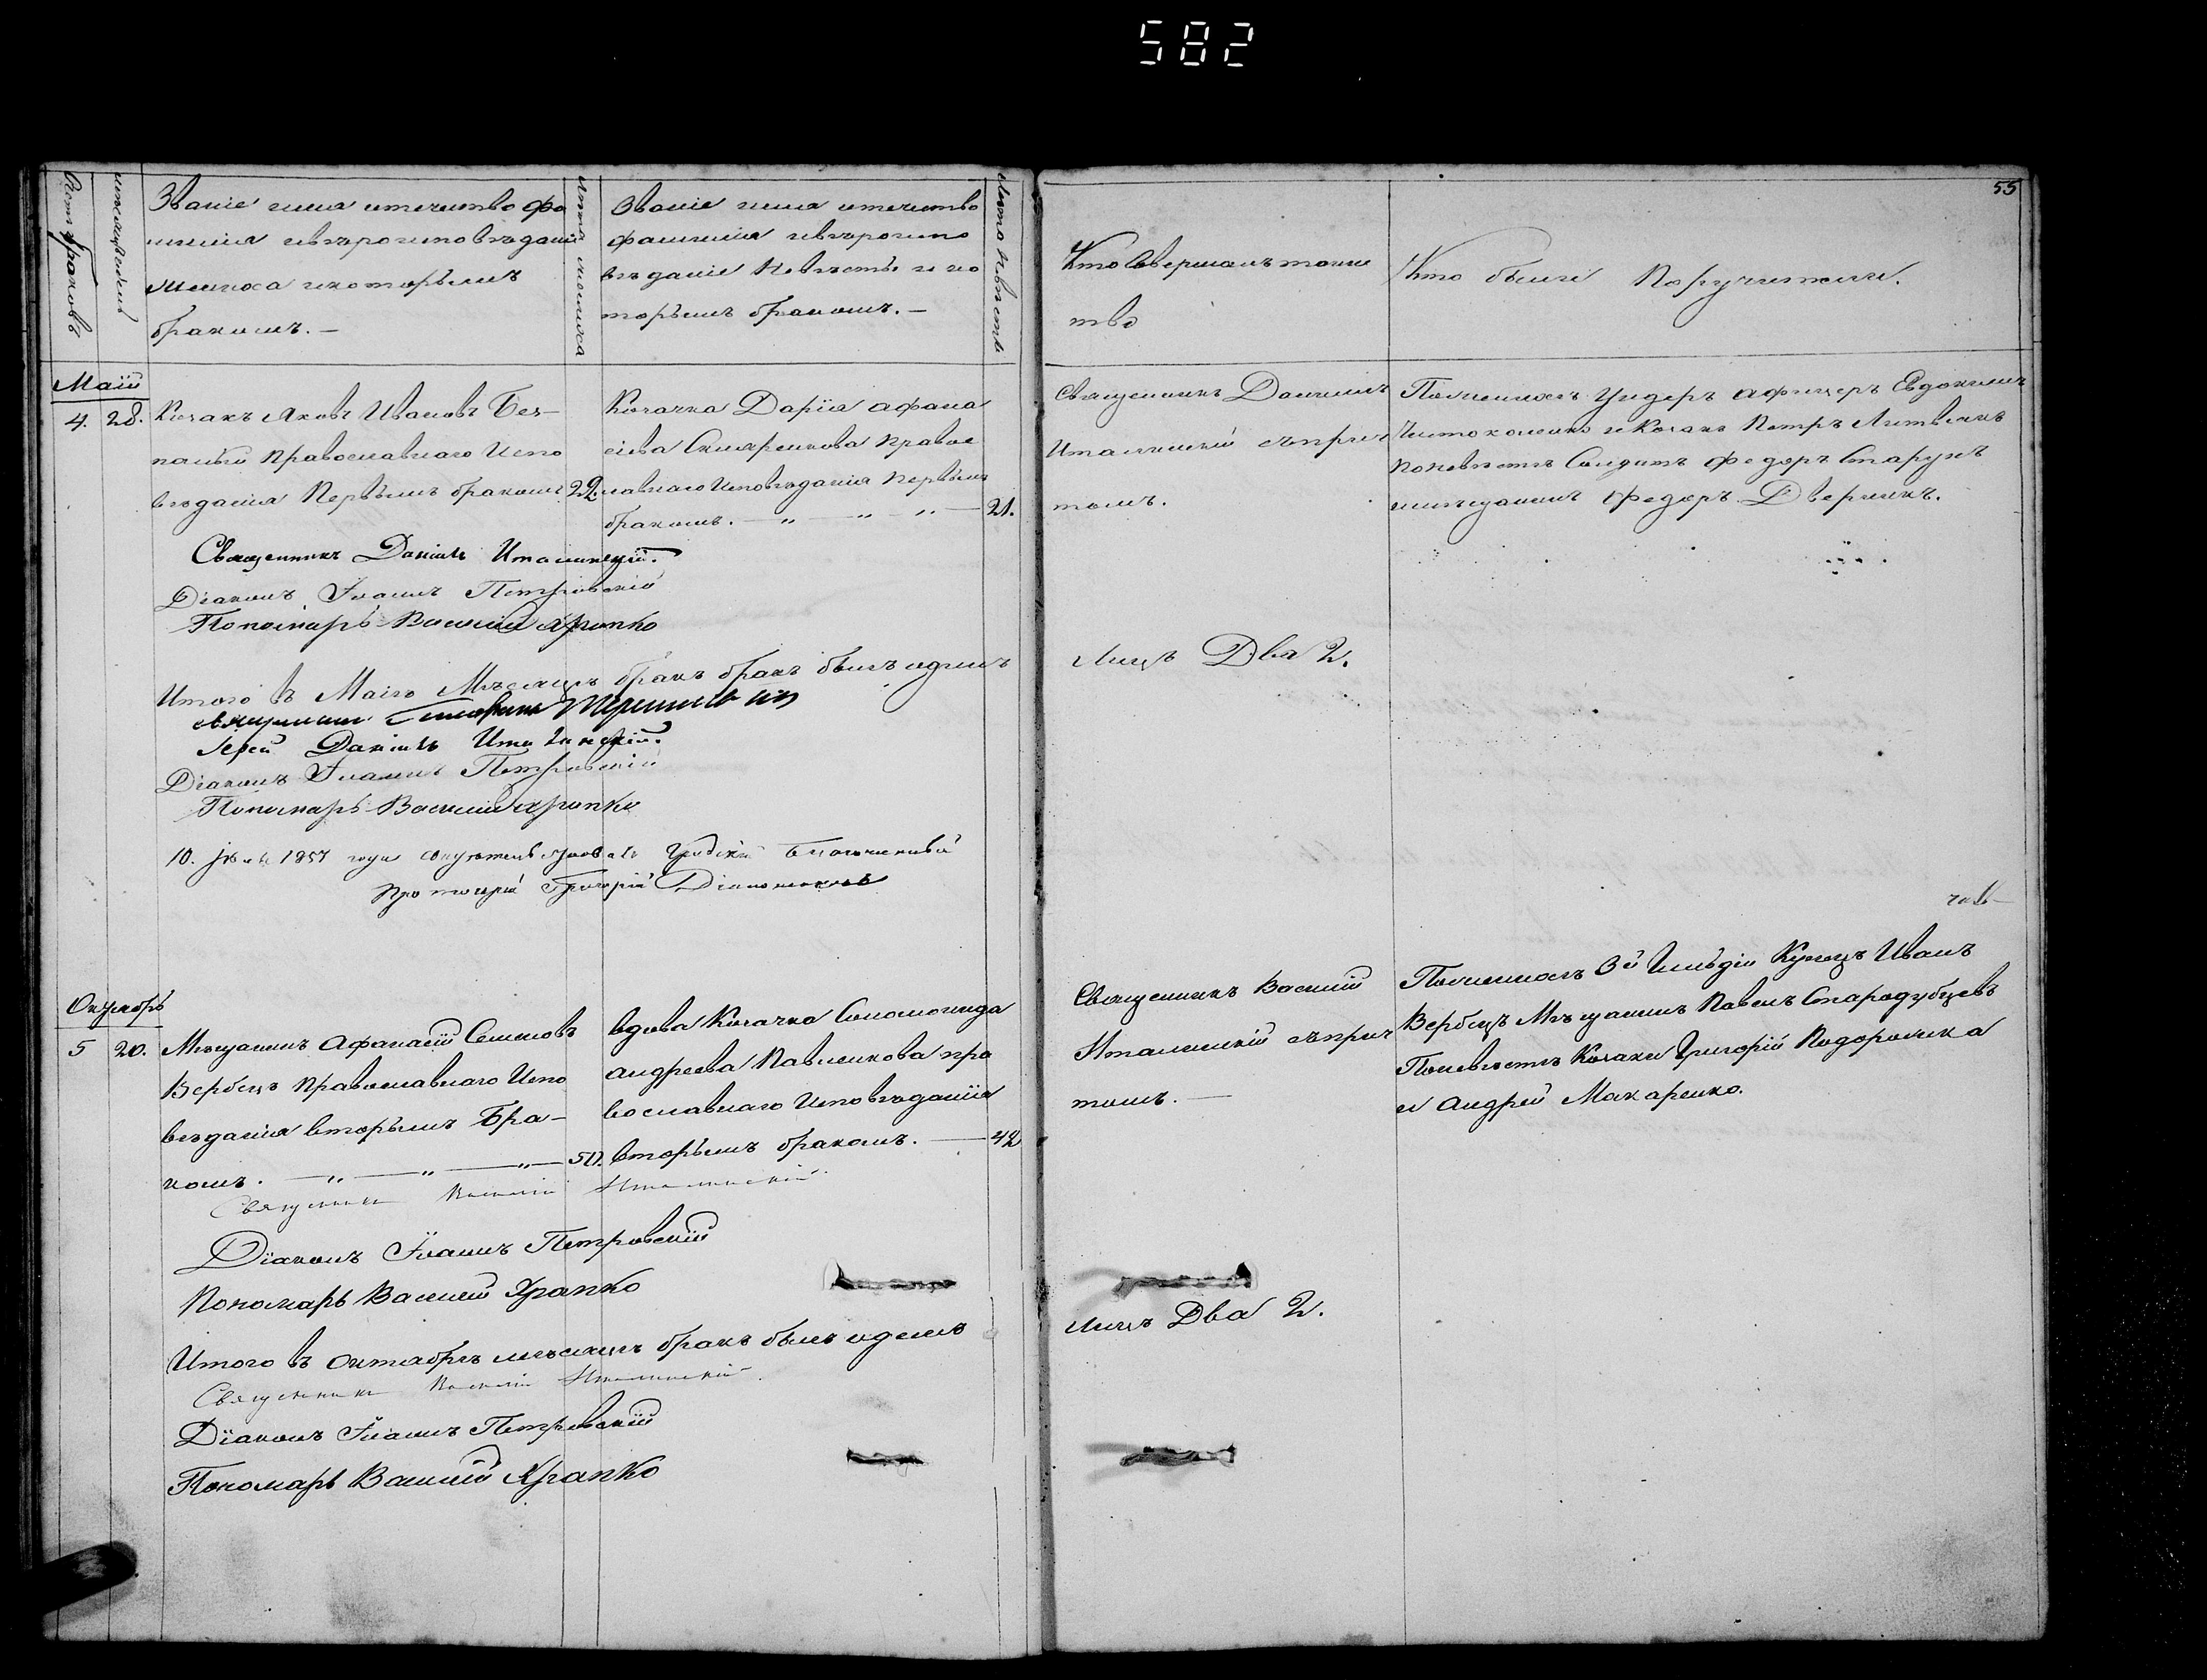 582
55
Счетъ браковъ
Мѣсяцъ и день
Званіе имя отечество фа
милія и вѣроисповѣданіе
Жениха и которымъ
бракомъ. —
Лѣта жениха
Званіе имя отечество
фамилія и вѣроиспо
вѣданіе Невѣсты и ко
торымъ бракомъ. —
Лѣта Невѣсты
Кто Совершалъ таинс
тво
Кто были Поручители.
Маій
4. 28.
Козакъ Яковъ Ивановъ Без-
палый Православнаго Испо
вѣданія Первымъ бракомъ 22.
Козачка Дарія Афана
сіева Скляренкова Право
славнаго Исповѣданія Первымъ
бракомъ. — " — " — " — 21.
Священникъ Даніилъ
Италинскій съ прич
томъ.
По женихѣ Ундеръ Афицеръ Евдокимъ
Чистоколенко и Козакъ Петръ Литвинъ
по невѣстѣ Солдатъ Федоръ Старунъ
и мѣщанинъ Федоръ Дверникъ.
Священникъ Даніилъ Италинскій.
Діаконъ Іоаннъ Петровскій
Пономарь Василій Храпко
Итого в Маіѣ Мѣсяцѣ бракъ бракъ былъ одинъ
Лицъ Два 2.
Священникъ
Іерей Даніилъ Италинскій.
Діаконъ Іоаннъ Петровскій
Пономарь Василій Храпко
10. 1857 года свидѣтельствовалъ Градскій Благочинный
Протоіерей Григорій
Октябрь
5 20.
Мѣщанинъ Афанасій Семеновъ
Вербецъ Православнаго Испо
вѣданія вторымъ Бра-
комъ. — " — " — " — 50.
вдова Козачка Соломонида
Андреева Павленкова пра
вославнаго Исповѣданія
вторымъ бракомъ. — 42
Священникъ Василій
Италинскій съ прич
томъ. —
По женихѣ 3й Гильдіи Купецъ Иванъ
Вербецъ Мѣщанинъ Павелъ Стародубцевъ
По невѣстѣ Козаки Григорій Подорожка
и Андрей Макаренко.
Священникъ Василій Италинскій
Діаконъ Іоаннъ Петровскій
Пономарь Василій Храпко
Итого в октябрѣ мѣсяцѣ бракъ былъ одинъ
Лицъ Два 2.
Священникъ Василій Италинскій.
Діаконъ Іоаннъ Петровскій
Пономарь Василій Храпко